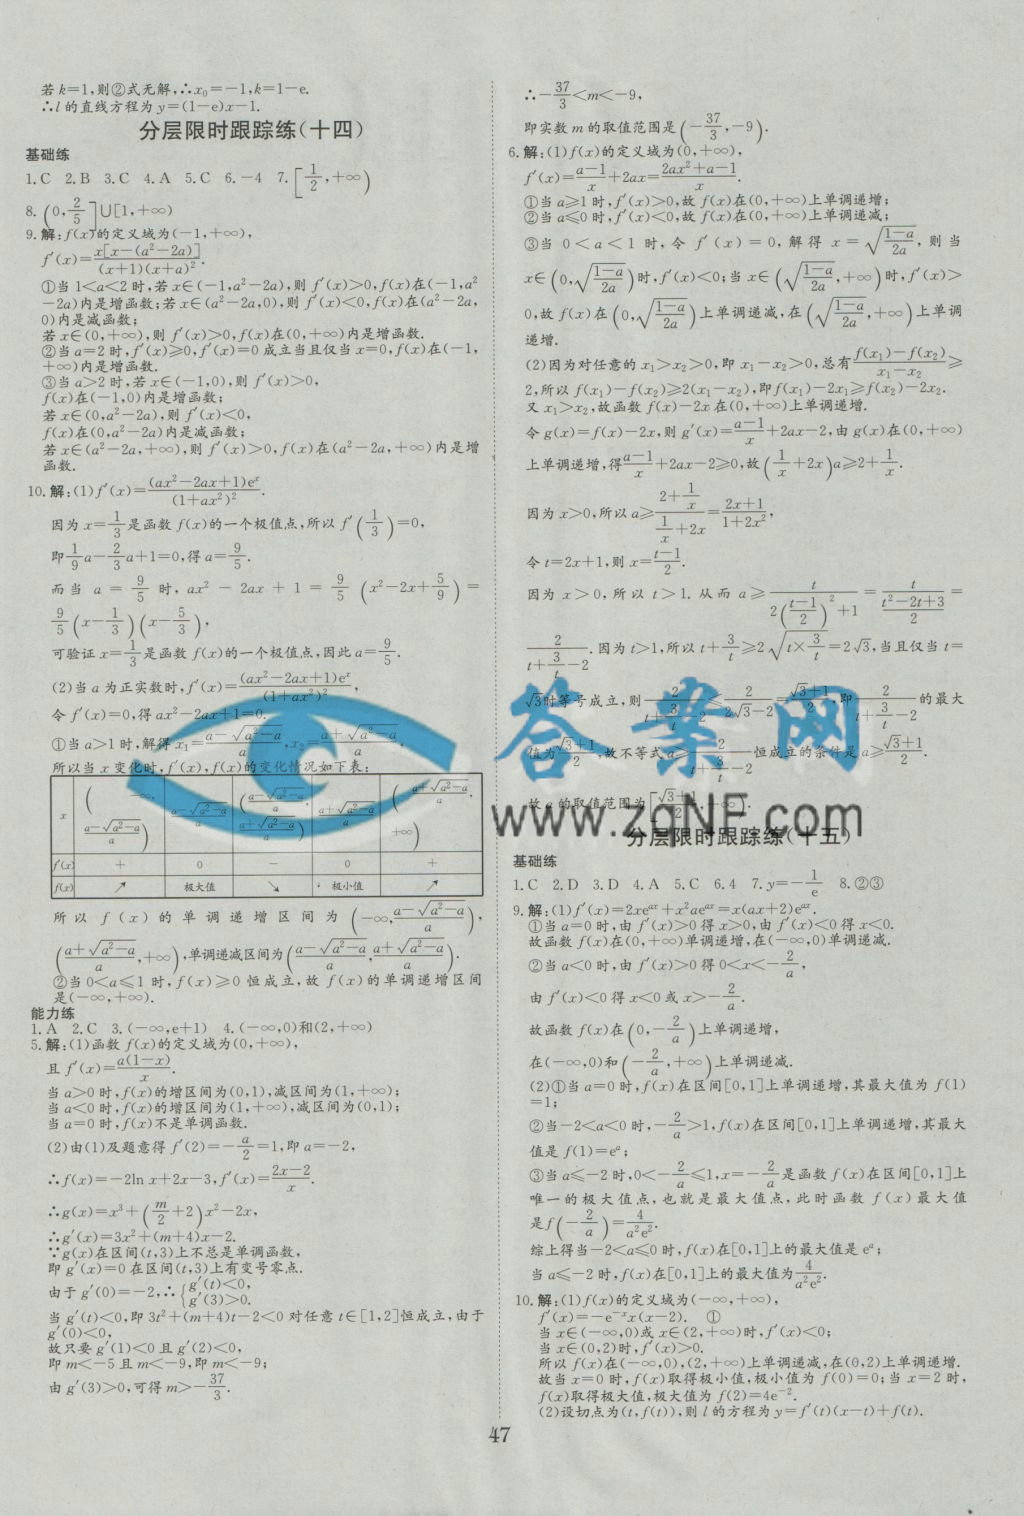 若k=1,则②式无解,∴x₀=-1,k=1-e.
∴l的直线方程为y=(1-e)x-1.
分层限时跟踪练(十四)
基础练
1.C 2.B 3.C 4.A 5.C 6.-4 7.[-1/2,+∞)
8.(0,2/5]∪[1,+∞)
9.解:f(x)的定义域为(-1,+∞),
f′(x)=x[x-(a²-2a)]/(x+1)(x+a)².
①当1<a<2时,若x∈(-1,a²-2a),则f′(x)>0,f(x)在(-1,a²
-2a)内是增函数;若x∈(a²-2a,0),则f′(x)<0,f(x)在(a²-2a,
0)内是减函数;
若x∈(0,+∞),则f′(x)>0,f(x)在(0,+∞)内是增函数.
②当a=2时,f′(x)≥0,f′(x)=0成立当且仅当x=0,f(x)在(-1,
+∞)内是增函数;
③当a>2时,若x∈(-1,0),则f′(x)>0,
f(x)在(-1,0)内是增函数;
若x∈(0,a²-2a),则f′(x)<0,
f(x)在(0,a²-2a)内是减函数;
若x∈(a²-2a,+∞),则f′(x)>0,f(x)在(a²-2a,+∞)内是增
函数.
10.解:(1)f′(x)=(ax²-2ax+1)eˣ/(1+ax²)².
因为x=1/3是函数f(x)的一个极值点,所以f′(1/3)=0,
即1/9a-2/3a+1=0,得a=9/5.
而当a=9/5时,ax²-2ax+1=9/5(x²-2x+5/9)=
9/5(x-1/3)(x-5/3),
可验证x=1/3是函数f(x)的一个极值点,因此a=9/5.
(2)当a为正实数时,f′(x)=(ax²-2ax+1)eˣ/(1+ax²)²,
令f′(x)=0,得ax²-2ax+1=0.
①当a>1时,解得x₁=(a-√(a²-a))/a,x₂=(a+√(a²-a))/a.
所以当x变化时,f′(x),f(x)的变化情况如下表:
x (-∞,(a-√(a²-a))/a) (a-√(a²-a))/a ((a-√(a²-a))/a,(a+√(a²-a))/a) (a+√(a²-a))/a ((a+√(a²-a))/a,+∞)
f′(x) + 0 - 0 +
f(x) ↗ 极大值 ↘ 极小值 ↗
所以f(x)的单调递增区间为(-∞,(a-√(a²-a))/a),
((a+√(a²-a))/a,+∞),单调递减区间为((a-√(a²-a))/a,(a+√(a²-a))/a).
②当0<a≤1时,f(x)≥0恒成立,故f(x)的单调递增区间
是(-∞,+∞).
能力练
1.A 2.C 3.(-∞,e+1) 4.(-∞,0)和(2,+∞)
5.解:(1)函数f(x)的定义域为(0,+∞),
且f′(x)=a(1-x)/x.
当a>0时,f(x)的增区间为(0,1),减区间为(1,+∞);
当a<0时,f(x)的增区间为(1,+∞),减区间为(0,1);
当a=0时,f(x)不是单调函数.
(2)由(1)及题意得f′(2)=-a/2=1,即a=-2,
∴f(x)=-2ln x+2x-3,f′(x)=(2x-2)/x.
∴g(x)=x³+(m/2+2)x²-2x,
∴g′(x)=3x²+(m+4)x-2.
∵g(x)在区间(t,3)上不总是单调函数,
即g′(x)=0在区间(t,3)上有变号零点.
由于g′(0)=-2,∴{g′(t)<0,
g′(3)>0.
当g′(t)<0,即3t²+(m+4)t-2<0对任意t∈[1,2]恒成立,由于
g′(0)<0,
故只要g′(1)<0且g′(2)<0,
即m<-5且m<-9,即m<-9;
由g′(3)>0,可得m>-37/3.
∴-37/3<m<-9,
即实数m的取值范围是(-37/3,-9).
6.解:(1)f(x)的定义域为(0,+∞),
f′(x)=(a-1)/x+2ax=(2ax²+a-1)/x.
①当a≥1时,f′(x)>0,故f(x)在(0,+∞)上单调递增;
②当a≤0时,f′(x)<0,故f(x)在(0,+∞)上单调递减;
③当0<a<1时,令f′(x)=0,解得x=√((1-a)/2a),则当
x∈(0,√((1-a)/2a))时,f′(x)<0;当x∈(√((1-a)/2a),+∞)时,f′(x)>
0,故f(x)在(0,√((1-a)/2a))上单调递减,在(√((1-a)/2a),+∞)上单调
递增.
(2)因为对任意的x₁>x₂>0,即x₁-x₂>0,总有(f(x₁)-f(x₂))/(x₁-x₂)≥
2,所以f(x₁)-f(x₂)≥2(x₁-x₂),即f(x₁)-2x₁≥f(x₂)-2x₂.
又x₁>x₂,故函数f(x)-2x在(0,+∞)上单调递增.
令g(x)=f(x)-2x,则g′(x)=(a-1)/x+2ax-2,由g(x)在(0,+∞)
上单调递增,得(a-1)/x+2ax-2≥0,故(1/x+2x)a≥2+1/x.
因为x>0,所以a≥(2+1/x)/(1/x+2x)=(2x+1)/(1+2x²),
令t=2x+1,则x=(t-1)/2.
因为x>0,所以t>1.从而a≥t/(2((t-1)/2)²+1)=t/((t²-2t+3)/2)=
2/(t+3/t-2).因为t>1,所以t+3/t≥2√(t×3/t)=2√3,当且仅当t=
√3时等号成立,则2/(t+3/t-2)≤2/(2√3-2)=(√3+1)/2,即2/(t+3/t-2)的最大
值为(√3+1)/2,故不等式a≥2/(t+3/t-2)恒成立的条件是a≥(√3+1)/2.
故a的取值范围为[(√3+1)/2,+∞).
答案网
www.zqNF.com
分层限时跟踪练(十五)
基础练
1.C 2.D 3.D 4.A 5.C 6.4 7.y=-1/e 8.②③
9.解:(1)f′(x)=2xeᵃˣ+x²aeᵃˣ=x(ax+2)eᵃˣ.
①当a=0时,由f′(x)>0得x>0,由f′(x)<0得x<0.
故函数f(x)在(0,+∞)单调递增,在(-∞,0)单调递减.
②当a<0时,由f′(x)>0得0<x<-2/a,
由f′(x)<0得x<0或x>-2/a.
故函数f(x)在(0,-2/a)上单调递增,
在(-∞,0)和(-2/a,+∞)上单调递减.
(2)①当a=0时,f(x)在区间[0,1]上单调递增,其最大值为f(1)
=1;
②当-2<a<0时,-2/a>1,f(x)在区间[0,1]上单调递增,其最大
值是f(1)=eᵃ;
③当a≤-2时,0<-2/a≤1,x=-2/a是函数f(x)在区间[0,1]上
唯一的极大值点,也就是最大值点,此时函数f(x)最大值
是f(-2/a)=4/a²e².
综上得当-2<a≤0时,f(x)在[0,1]上的最大值是eᵃ;
当a≤-2时,f(x)在[0,1]上的最大值为4/a²e².
10.解:(1)f(x)的定义域为(-∞,+∞),
f′(x)=-e⁻ˣx(x-2). ①
当x∈(-∞,0)或x∈(2,+∞)时,f′(x)<0;
当x∈(0,2)时,f′(x)>0.
所以f(x)在(-∞,0),(2,+∞)上单调递减,在(0,2)上单调递增.
故当x=0时,f(x)取得极小值,极小值为f(0)=0;当x=2时,
f(x)取得极大值,极大值为f(2)=4e⁻².
(2)设切点为(t,f(t)),则l的方程为y=f′(t)(x-t)+f(t).
47